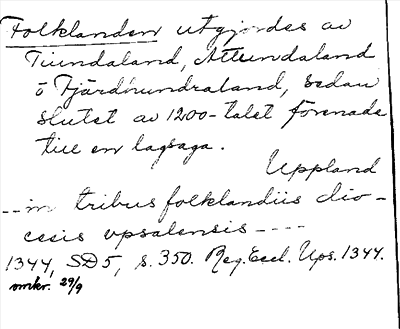 Folklanden utgjordes av
Tiundaland, Attundaland
o Fjärdhundraland, sedan
slutet av 1200-talet förenade
till en lagsaga.
Uppland
--in tribus folklandiis dio-
cesis upsalensis ----
1344, SD 5, s. 350. Reg. Eccl. Ups. 1344.
omkr. 29/9